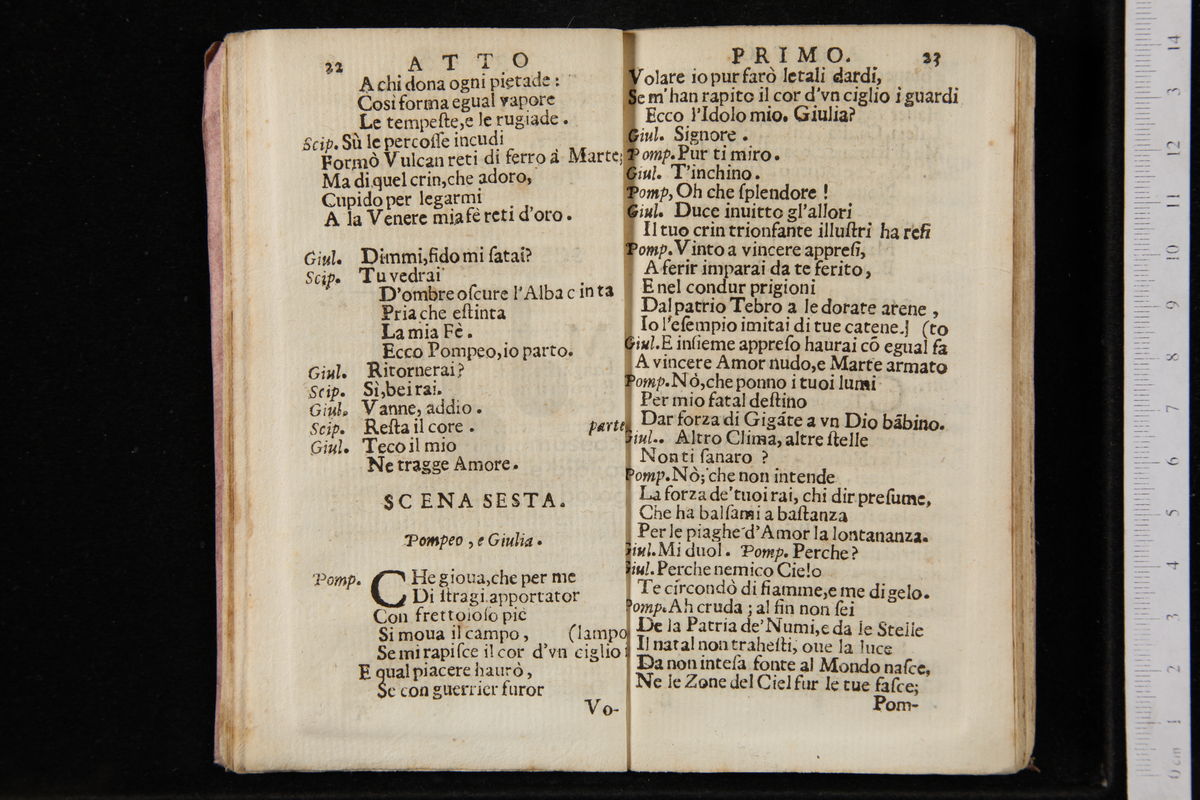 22 ATTO
A chi dona ogni pietade:
Così forma egual vapore
Le tempeſte,e le rugiade.
Scip. Sù le percoſſe incudi
Formò Vulcan reti di ferro à Marte;
Ma di quel crin,che adoro,
Cupido per legarmi
A la Venere mia fè reti d'oro.
Giul. Dimmi,fido mi ſarai?
Scip. Tu vedrai
D'ombre oſcure l'Alba cinta
Pria che eſtinta
La mia Fè.
Ecco Pompeo,io parto.
Giul. Ritornerai?
Scip. Sì,bei rai.
Giul. Vanne, addio.
Scip. Reſta il core. parte
Giul. Teco il mio
Ne tragge Amore.
SCENA SESTA.
Pompeo, e Giulia.
Pomp. CHe gioua,che per me
Di ſtragi apportator
Con frettoloſo piè
Si moua il campo, (lampo
Se mi rapiſce il cor d'vn ciglio i
E qual piacere haurò,
Se con guerrier furor
Vo-
PRIMO. 23
Volare io pur farò letali dardi,
Se m'han rapito il cor d'vn ciglio i guardi
Ecco l'Idolo mio. Giulia?
Giul. Signore.
Pomp. Pur ti miro.
Giul. T'inchino.
Pomp, Oh che ſplendore!
Giul. Duce inuitto gl'allori
Il tuo crin trionfante illuſtri ha reſi
Pomp. Vinto a vincere appreſi,
A ferir imparai da te ferito,
E nel condur prigioni
Dal patrio Tebro a le dorate arene,
Io l'eſempio imitai di tue catene.] (to
Giul. E inſieme appreſo haurai cõ egual fa
A vincere Amor nudo,e Marte armato
Pomp. Nò,che ponno i tuoi lumi
Per mio fatal deſtino
Dar forza di Gigãte a vn Dio bãbino.
Giul.. Altro Clima, altre ſtelle
Non ti ſanaro?
Pomp. Nò; che non intende
La forza de'tuoi rai, chi dir preſume,
Che ha balſami a baſtanza
Per le piaghe d'Amor la lontananza.
Giul. Mi duol. Pomp. Perche?
Giul. Perche nemico Cielo
Te circondò di fiamme,e me di gelo.
Pomp. Ah cruda; al fin non ſei
De la Patria de'Numi,e da le Stelle
Il natal non traheſti, oue la luce
Da non inteſa fonte al Mondo naſce,
Ne le Zone del Ciel fur le tue faſce;
Pom-